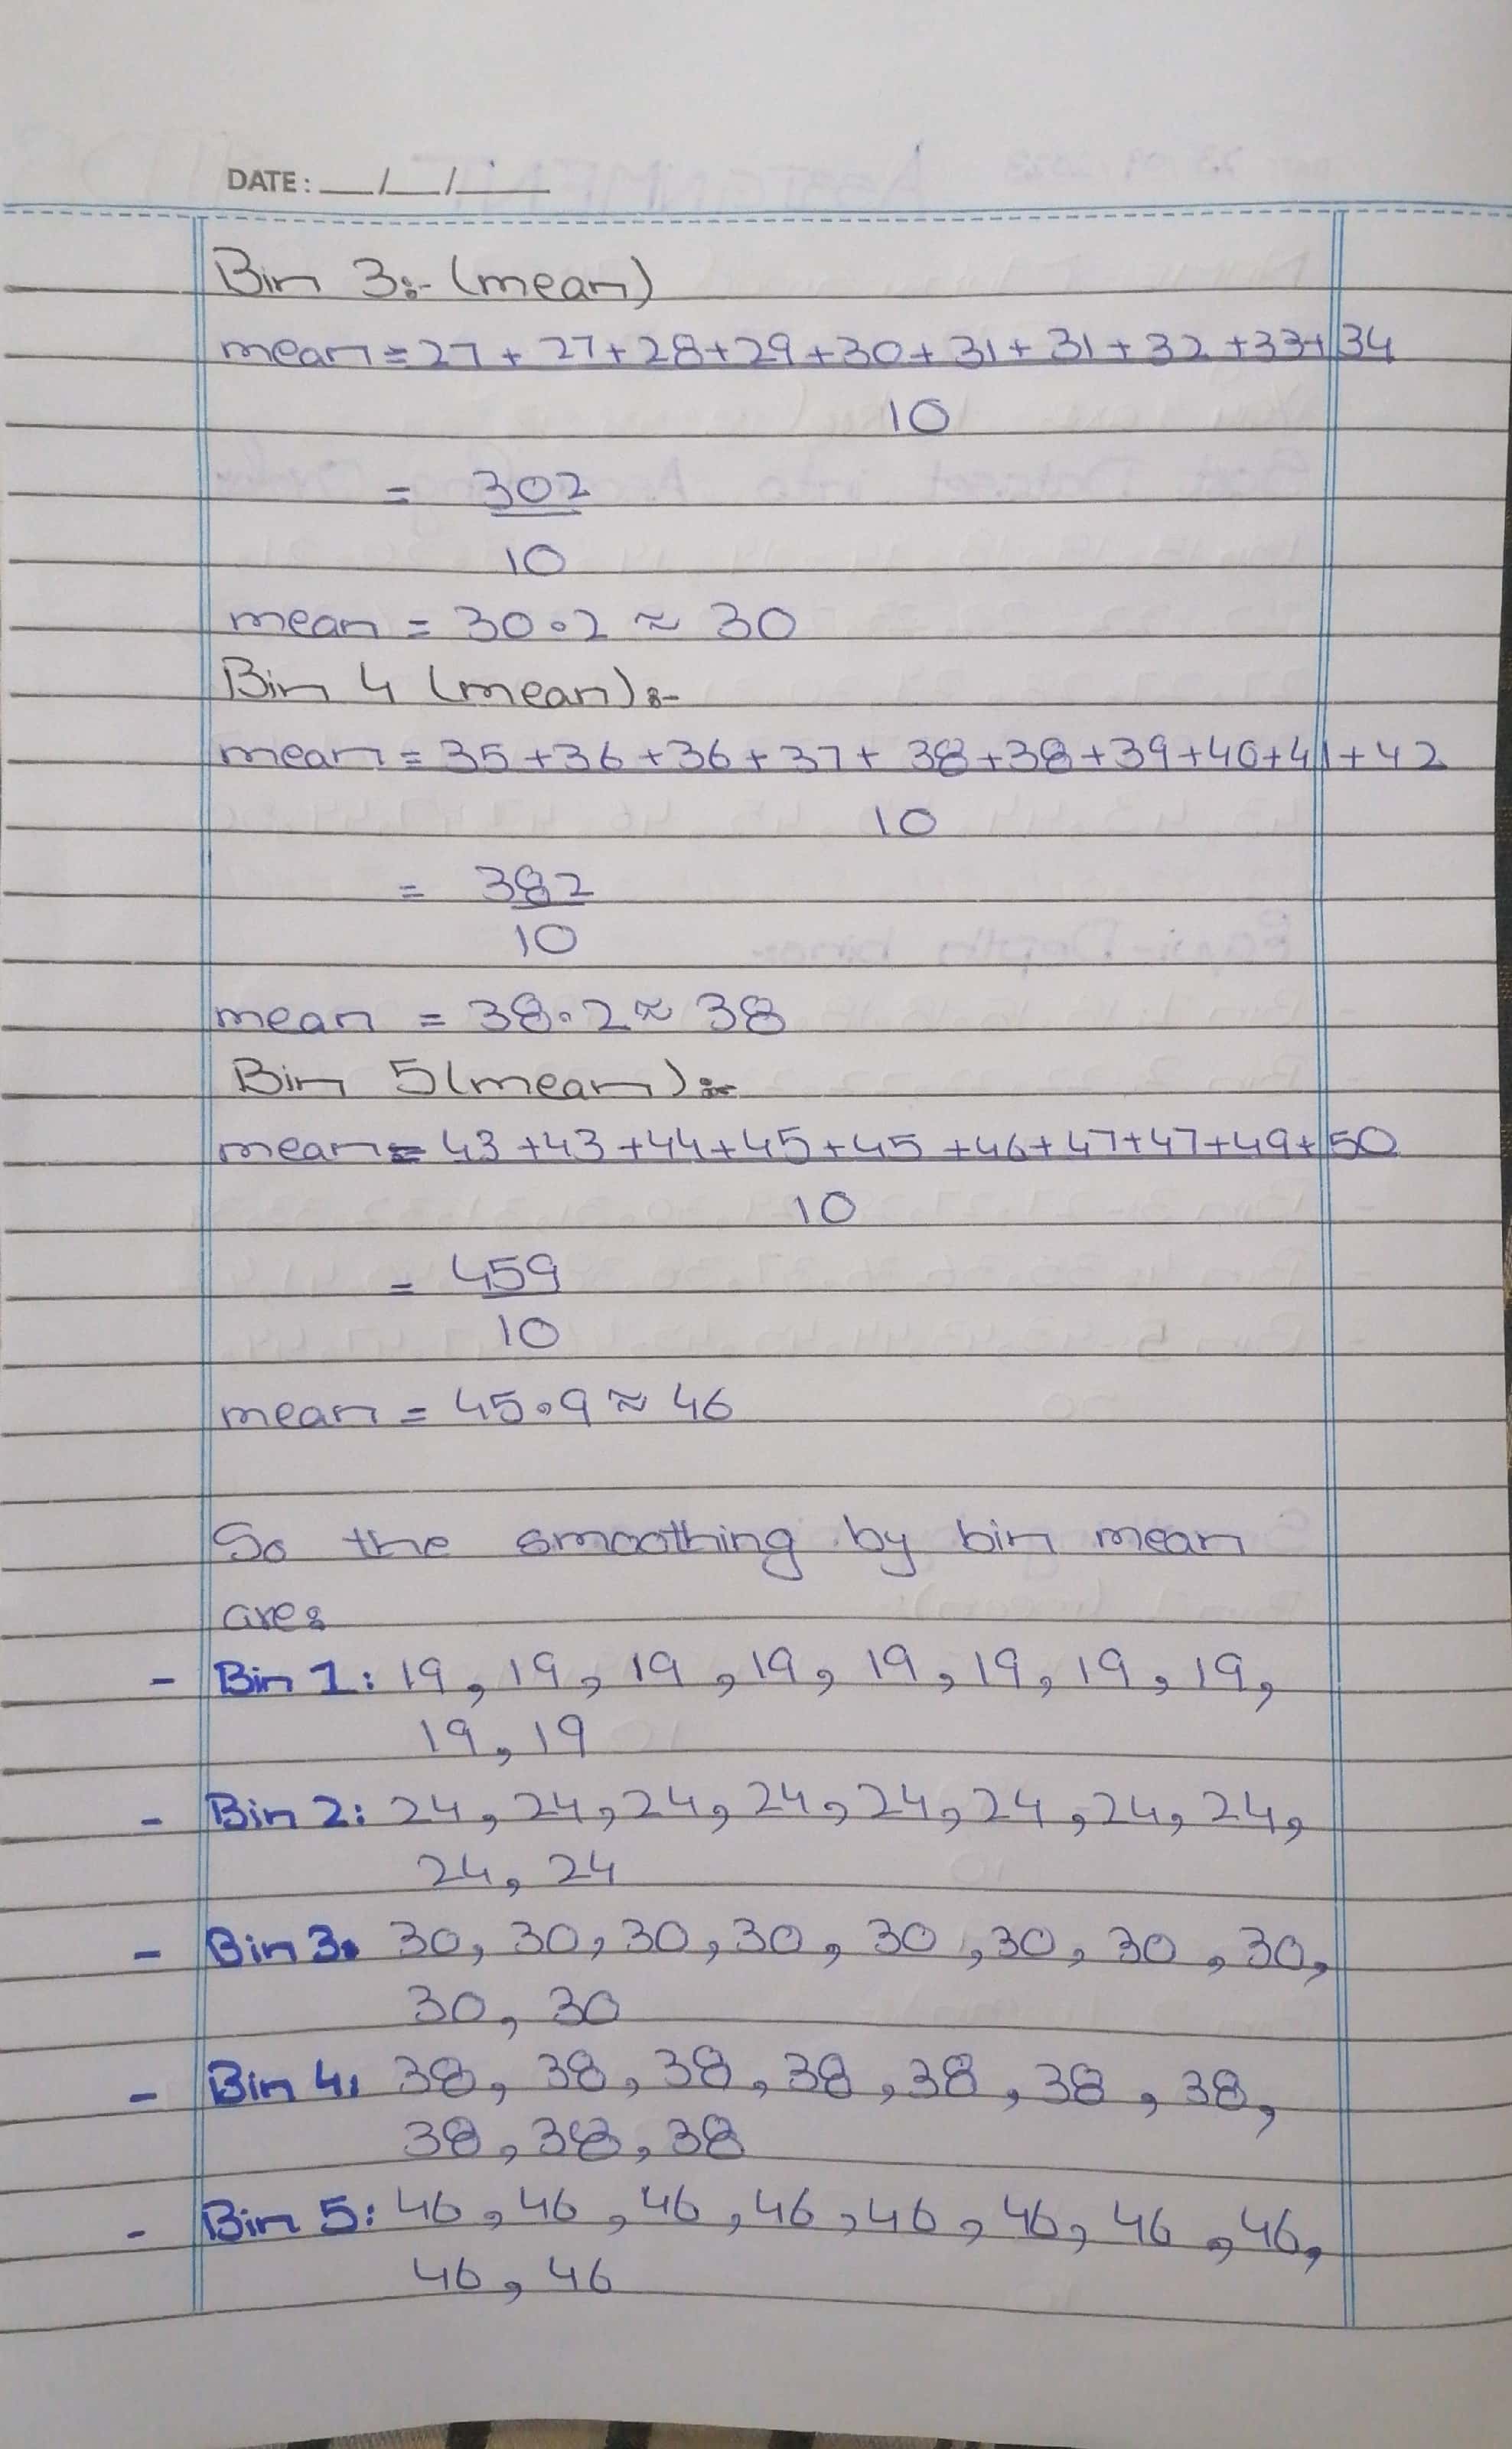 DATE: __/__/____
Bin 3:- (mean)
mean = 27 + 27 + 28 + 29 + 30 + 31 + 31 + 32 + 33 + 34
10
= 302
10
mean = 30.2 ≈ 30
Bin 4 (mean):-
mean = 35 + 36 + 36 + 37 + 38 + 38 + 39 + 40 + 41 + 42
10
= 382
10
mean = 38.2 ≈ 38
Bin 5 (mean):-
mean = 43 + 43 + 44 + 45 + 45 + 46 + 47 + 47 + 49 + 50
10
= 459
10
mean = 45.9 ≈ 46
So the smoothing by bin mean
are:
- Bin 1: 19, 19, 19, 19, 19, 19, 19, 19,
19, 19
- Bin 2: 24, 24, 24, 24, 24, 24, 24, 24,
24, 24
- Bin 3: 30, 30, 30, 30, 30, 30, 30, 30,
30, 30
- Bin 4: 38, 38, 38, 38, 38, 38, 38,
38, 38, 38
- Bin 5: 46, 46, 46, 46, 46, 46, 46, 46,
46, 46